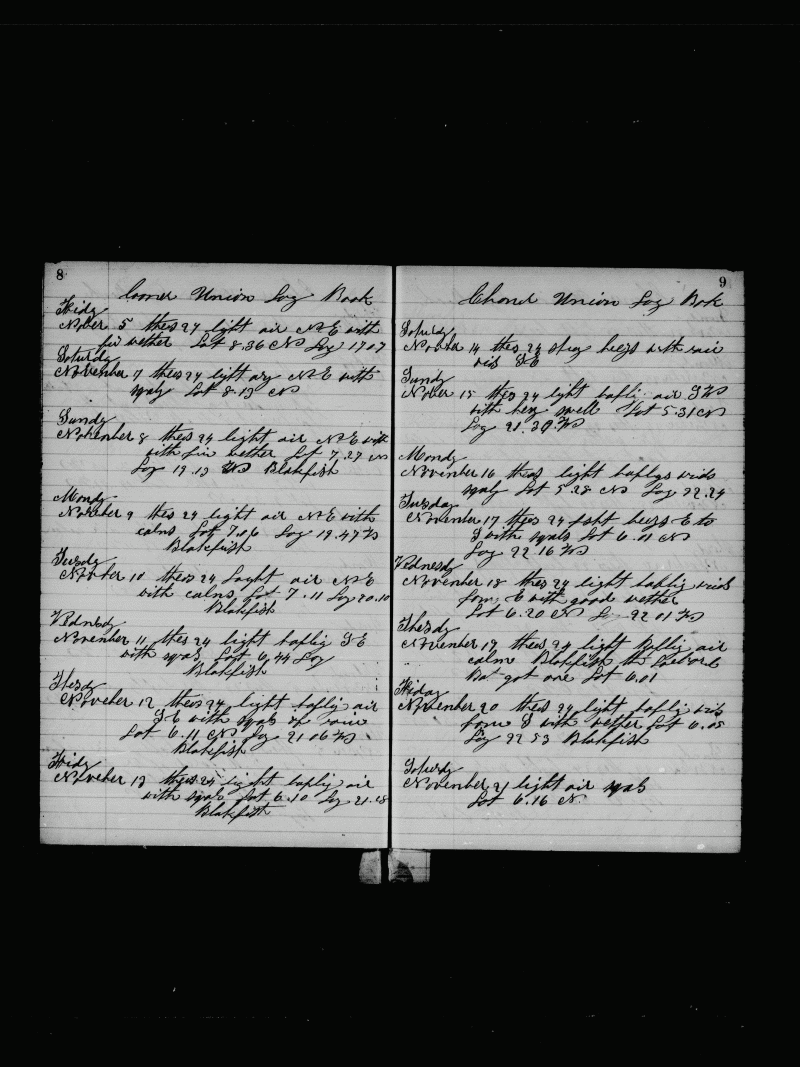 8
Union Log Book
Fridy
Nober 5 thes 24 light air N E with
fir wether Lat 8.36 N Log 17 07
Soturdy
November 7 thes 24 light ary N E with
sqaly Lat 8.13 N
Sundy
November 8 thes 24 light air N E with
with fin wether Lat 7.27 N
Log 19.13 W Blakfish
Mondy
November 9 thes 24 light air N E with
calns Lat 7.06 Log 19.47 W
Blakfish
Tusdy
November 10 thes 24 Laght air N E
with calns Lat 7.11 Log 20.10
Blakfish
Wednedy
November 11 thes 24 light baflig S E
with sqals Lat 6.44 Log
Blakfish
Thesdy
Noveber 12 thes 24 light baflig air
S E with sqals of raine
Lat 6.11 N Log 21 06 W
Blakfish
Fridy
Noveber 13 thes 24 light baflig air
with sqals Lat 6.10 Log 21.18
Blakfish
9
Union Log Bok
Soturdy
November 14 thes 24 with rain
S E
Sundy
Nober 15 thes 24 light baflig air S W
with hevy swell Lat 5.31 N
Log 21.39 W
Mondy
November 16 thes light baflygs wids
sqaly Lat 5.28 N Log 22.24
Tusday
November 17 thes 24 E to
S with sqals Lat 6.01 N
Log 22 16 W
Wednesdy
November 18 thes 24 light baflig wids
from E with good wether
Lat 6.20 N Log 22 01 W
Thesdy
November 19 thes 24 light Baflig air
calms Blakfish
Bat got one Lat 6.01
Friday
November 20 thes 24 light baflig wids
from S with wether Lat 6.05
Log 22 53 Blakfish
Soturdy
November 21 light air sqals
Lat 6.16 N